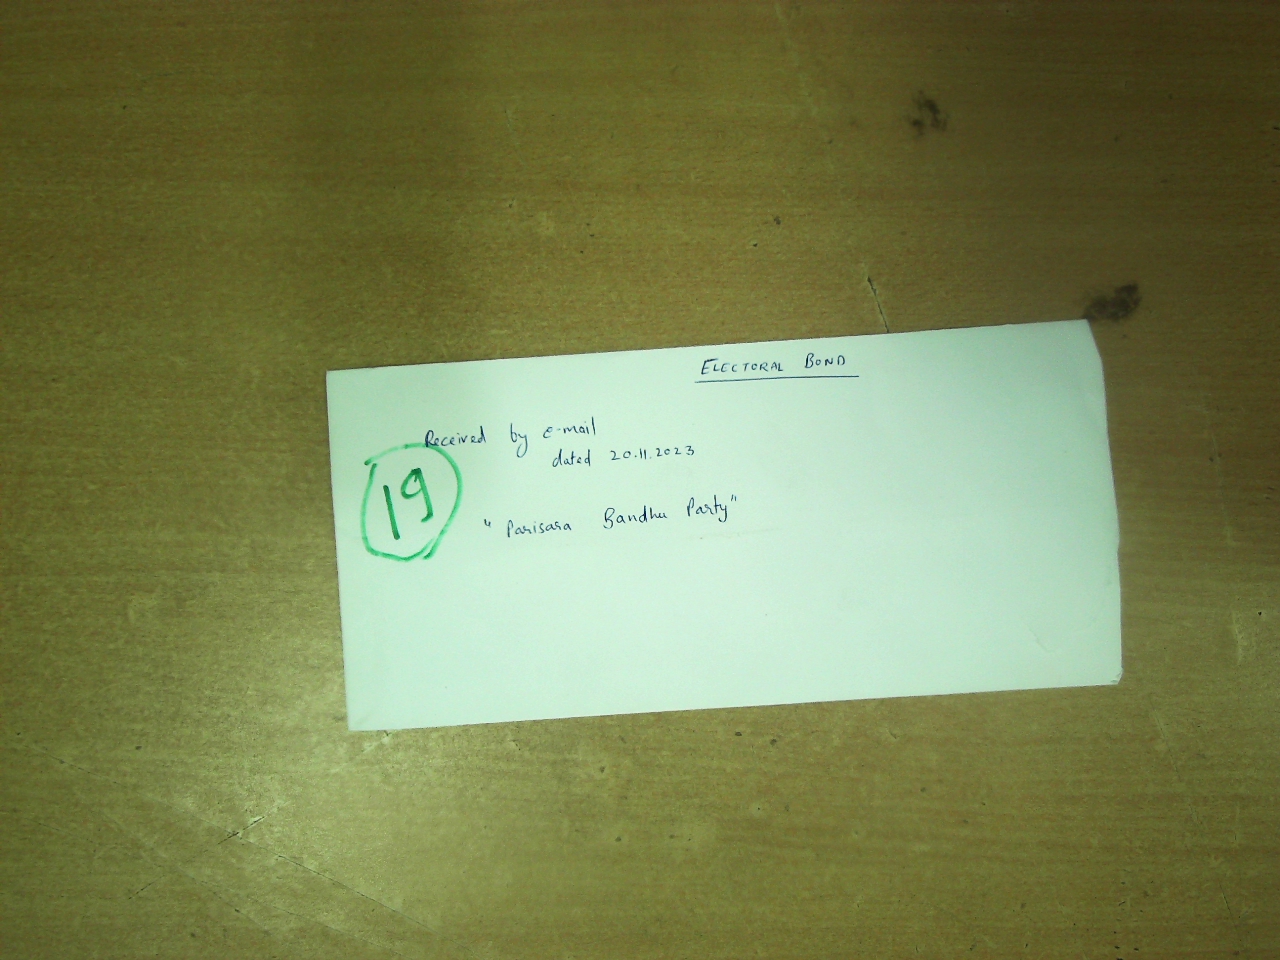 ELECTORAL BOND
Received by e-mail
dated 20.11.2023
19
"Parisara Bandhu Party"